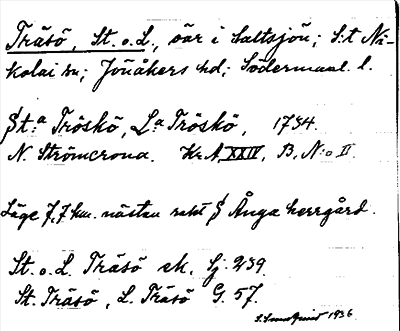 Träsö, St. o. L., öar i Saltsjön; S:t Ni-
kolai sn; Jönåkers hd; Södermanl. l.
St:a Tröskö, L:a Tröskö, 1784.
N. Strömcrona. Kr.A, XXIV, B, N:o II.
Läge 7,7 km. nästan rakt S Ånga herrgård.
St. o. L. Träsö ek. Gj. 239.
St. Träsö, L. Träsö G. 57.
1936